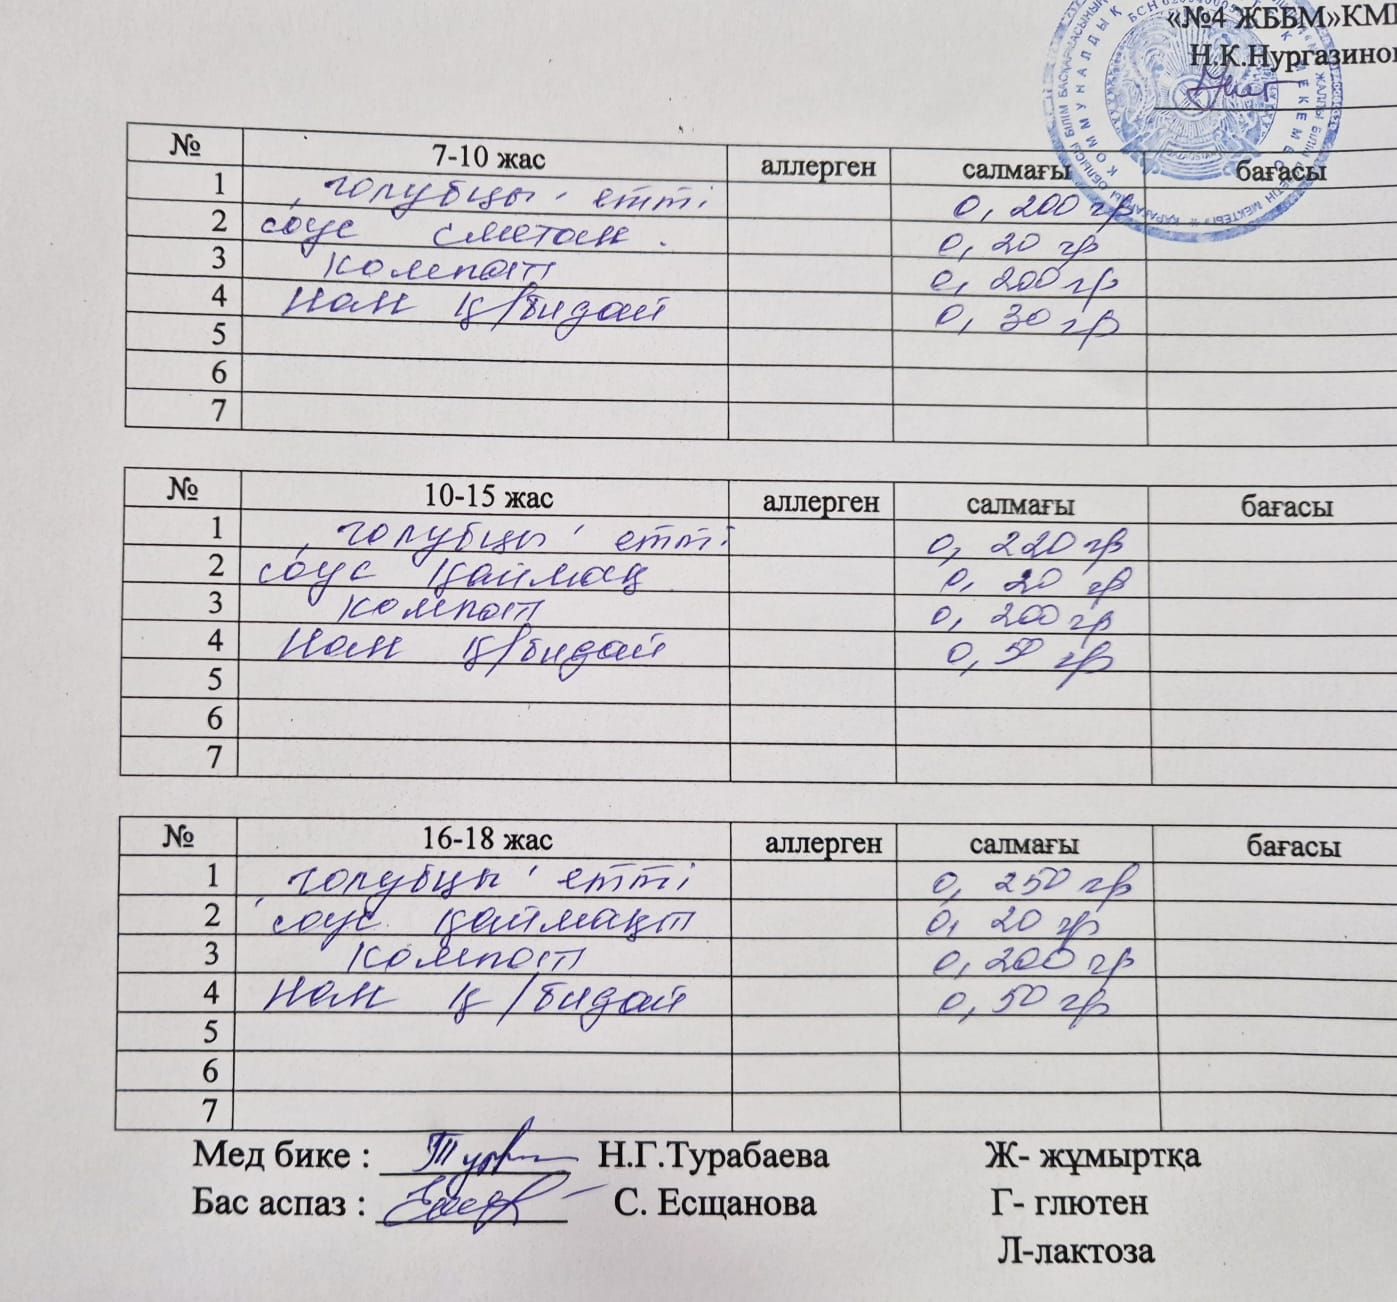 «№4 ЖББМ»КМ
Н.К.Нургазинов
№ 7-10 жас аллерген салмағы бағасы
1 голубцы етті 0, 200 гр
2 соус сметан 0, 20 гр
3 компот 0, 200 гр
4 Нан қ/бидай 0, 30 гр
5
6
7
№ 10-15 жас аллерген салмағы бағасы
1 голубцы етті 0, 220 гр
2 соус қаймақ 0, 20 гр
3 компот 0, 200 гр
4 Нан қ/бидай 0, 50 гр
5
6
7
№ 16-18 жас аллерген салмағы бағасы
1 голубцы етті 0, 250 гр
2 соус қаймақт 0, 20 гр
3 компот 0, 200 гр
4 Нан қ/бидай 0, 50 гр
5
6
7
Мед бике : Н.Г.Турабаева Ж- жұмыртқа
Бас аспаз : С. Есщанова Г- глютен
Л-лактоза